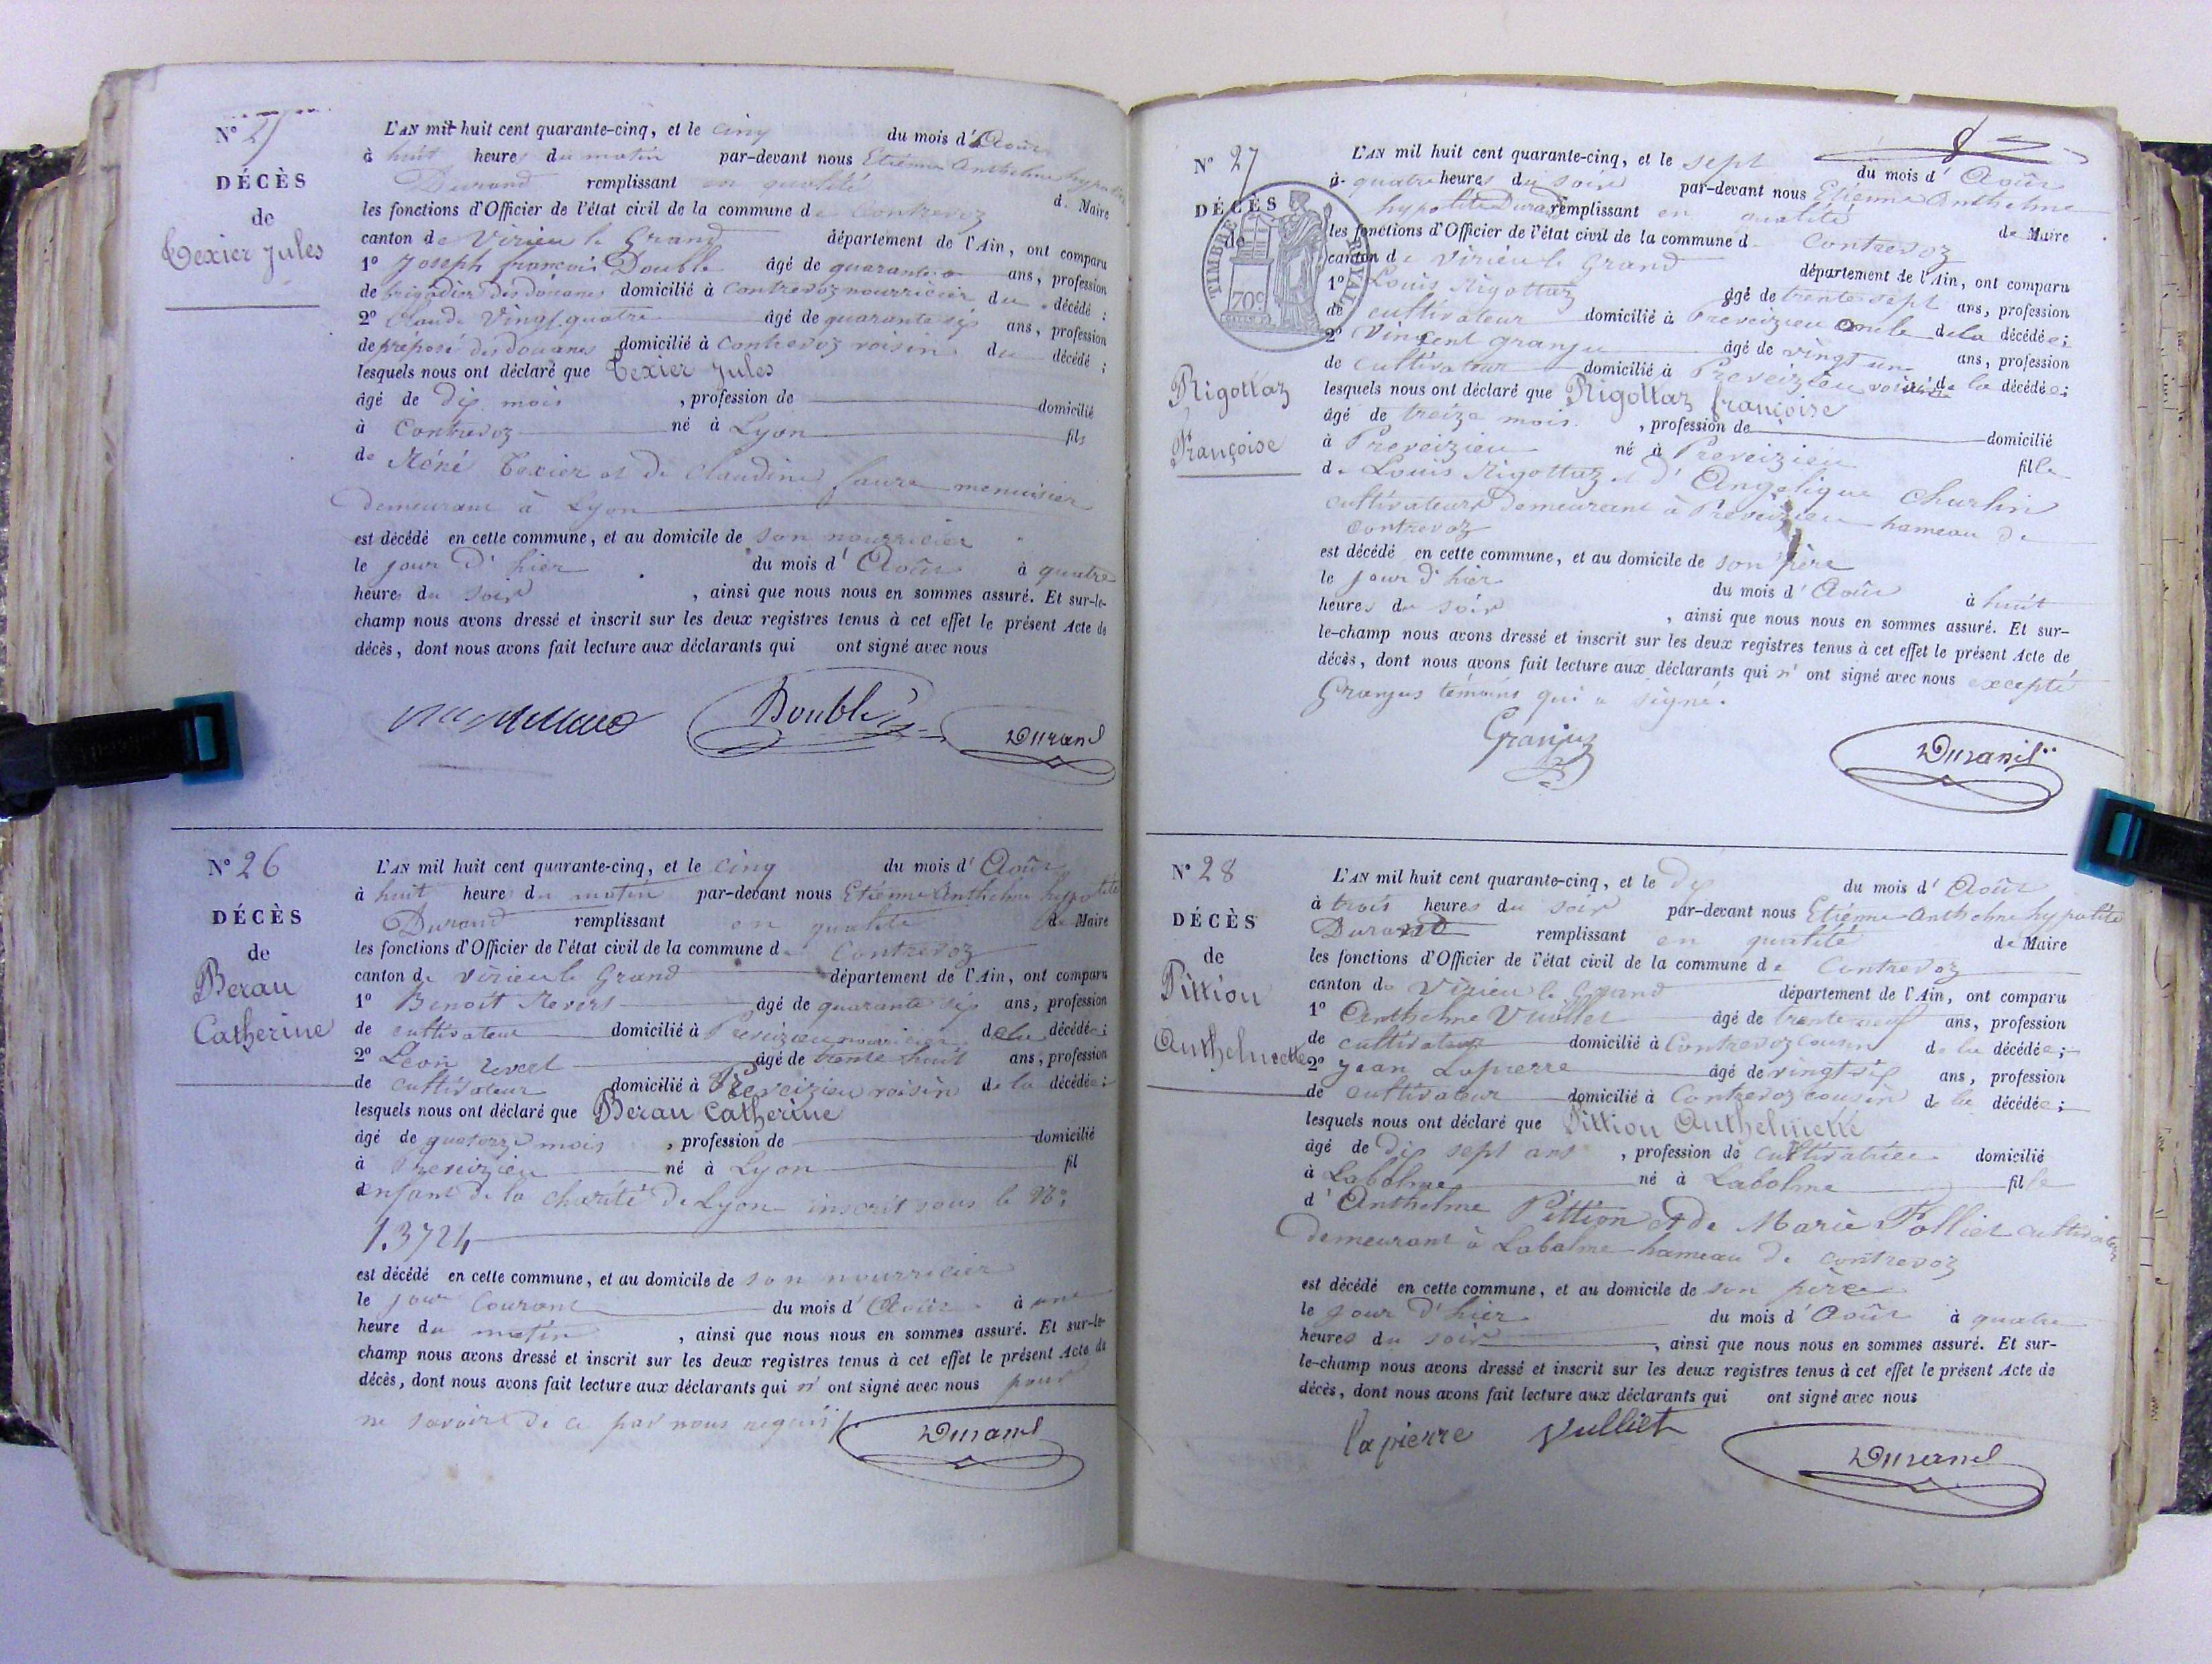 N° 25
DÉCÈS
de
Texier Jules
L'AN mil huit cent quarante-cinq, et le cinq du mois d'Août
à huit heures du matin par-devant nous Etienne Anthelme hypolite
Durand remplissant en qualité de Maire
les fonctions d'Officier de l'état civil de la commune de Contrevoz
canton de Virieu le Grand département de l'Ain, ont comparu
1° Joseph françois Double âgé de quarante ans, profession
de brigadier des douanes domicilié à Contrevoz nourricier du décédé ;
2° Claude Vingt quatre âgé de quarante six ans, profession
de préposé des douanes domicilié à Contrevoz voisin du décédé ;
lesquels nous ont déclaré que Texier Jules
âgé de dix mois , profession de domicilié
à Contrevoz né à Lyon fils
de Réné Texier et de Claudine faure menuisier
demeurant à Lyon
est décédé en cette commune, et au domicile de son nourricier
le jour d'hier du mois d'Août à quatre
heures du soir , ainsi que nous nous en sommes assuré. Et sur-le-
champ nous avons dressé et inscrit sur les deux registres tenus à cet effet le présent Acte de
décès, dont nous avons fait lecture aux déclarants qui ont signé avec nous
Double Durand
N° 26
DÉCÈS
de
Berau
Catherine
L'AN mil huit cent quarante-cinq, et le cinq du mois d'Août
à huit heure du matin par-devant nous Etienne Anthelme hypolite
Durand remplissant en qualité de Maire
les fonctions d'Officier de l'état civil de la commune de Contrevoz
canton de Virieu le Grand département de l'Ain, ont comparu
1° Benoit Revers âgé de quarante six ans, profession
de cultivateur domicilié à Preveizieu nourricier de la décédée ;
2° Léon Revert âgé de trente huit ans, profession
de cultivateur domicilié à Preveizieu voisin de la décédée ;
lesquels nous ont déclaré que Berau Catherine
âgé de quatorze mois , profession de domicilié
à Preveizieu né à Lyon fil
enfant de la charité de Lyon inscrit sous le N°:
13724
est décédé en cette commune, et au domicile de son nourricier
le jour Courant du mois d'Août à une
heure du matin , ainsi que nous nous en sommes assuré. Et sur-le-
champ nous avons dressé et inscrit sur les deux registres tenus à cet effet le présent Acte de
décès, dont nous avons fait lecture aux déclarants qui n' ont signé avec nous pour
ne savoir de ce par nous requis
Durand
N° 27
DÉCÈS
de
TIMBRE ROYAL
70c
Rigottaz
Françoise
L'AN mil huit cent quarante-cinq, et le sept du mois d'Août
à quatre heures du soir par-devant nous Etienne Anthelme
hypolite Durand remplissant en qualité de Maire
les fonctions d'Officier de l'état civil de la commune d Contrevoz
canton de Virieu le Grand département de l'Ain, ont comparu
1° Louis Rigottaz âgé de trente sept ans, profession
de cultivateur domicilié à Preveizieu oncle de la décédée ;
2° Vincent granju âgé de vingt un ans, profession
de cultivateur domicilié à Preveizieu voisin de la décédée ;
lesquels nous ont déclaré que Rigottaz françoise
âgé de treize mois , profession de domicilié
à Preveizieu né à Preveizieu fille
de Louis Rigottaz et d'Angelique Charlin
cultivateurs demeurant à Preveizieu hameau de
Contrevoz
est décédé en cette commune, et au domicile de son père
le jour d'hier du mois d'Août à huit
heures du soir , ainsi que nous nous en sommes assuré. Et sur-
le-champ nous avons dressé et inscrit sur les deux registres tenus à cet effet le présent Acte de
décès, dont nous avons fait lecture aux déclarants qui n' ont signé avec nous excepté
Granjus témoins qui a signé.
Granju Durand
N° 28
DÉCÈS
de
Pittion
Anthelmette
L'AN mil huit cent quarante-cinq, et le dix du mois d'Août
à trois heures du soir par-devant nous Etienne Anthelme hypolite
Durand remplissant en qualité de Maire
les fonctions d'Officier de l'état civil de la commune de Contrevoz
canton de Virieu le Grand département de l'Ain, ont comparu
1° Anthelme Vuilliet âgé de trente neuf ans, profession
de cultivateur domicilié à Contrevoz cousin de la décédée ;
2° Jean Lapierre âgé de vingt six ans, profession
de cultivateur domicilié à Contrevoz cousin de la décédée ;
lesquels nous ont déclaré que Pittion Anthelmette
âgé de dix sept ans , profession de cultivatrice domicilié
à Labalme né à Labalme fille
d'Anthelme Pittion et de Marie Folliet cultivateurs
demeurant à Labalme hameau de Contrevoz
est décédé en cette commune, et au domicile de son père
le jour d'hier du mois d'Août à quatre
heures du soir , ainsi que nous nous en sommes assuré. Et sur-
le-champ nous avons dressé et inscrit sur les deux registres tenus à cet effet le présent Acte de
décès, dont nous avons fait lecture aux déclarants qui ont signé avec nous
lapierre Vulliet
Durand